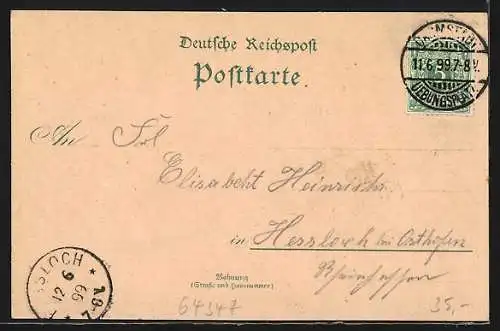 Deutsche Reichspost
Postkarte.
DARMSTADT
11.6.99.7-8V.
UEBUNGSPLATZ
5
An Frl
Elisabeht Heinrich
in Hessloch bei Osthofen
Rheinhessen
Wohnung
(Straße und Hausnummer)
SLOCH
12
6
99
64347
35,-